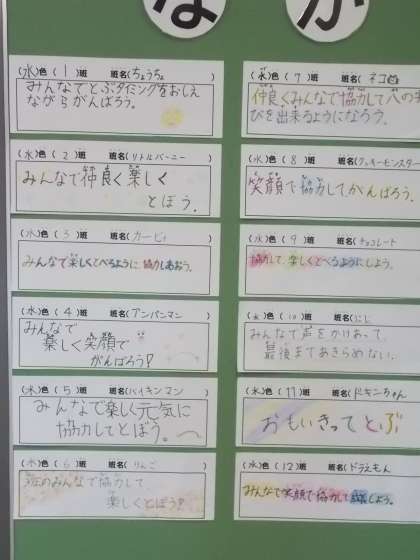 なか
(水)色(1)班 班名(ちょうちょ)
みんなでとぶタイミングをおしえ
ながらがんばろう。
(水)色(2)班 班名(リトルバーニー)
みんなで仲良く楽しく
とぼう。
(水)色(3)班 班名(カービィ)
みんなで楽しくとべるように協力しあおう。
(水)色(4)班 班名(アンパンマン)
みんなで
楽しく笑顔で
がんばろう!
(水)色(5)班 班名(バイキンマン)
みんなで楽しく元気に
協力してとぼう。
(水)色(6)班 班名(りんご)
班のみんなで協力して
楽しくとぼう!
(水)色(7)班 班名(ネコ
仲良くみんなで協力して八の字
びを出来るようになろう。
(水)色(8)班 班名(クッキーモンスター
笑顔で協力してがんばろう。
(水)色(9)班 班名(チョコレート
協力して楽しくとべるようにしよう。
(水)色(10)班 班名(にじ
みんなで声をかけあって、
最後まであきらめない。
(水)色(11)班 班名(ドキンちゃん
おもいきってとぶ
(水)色(12)班 班名(ドラえもん
みんなで笑顔で協力して しよう。